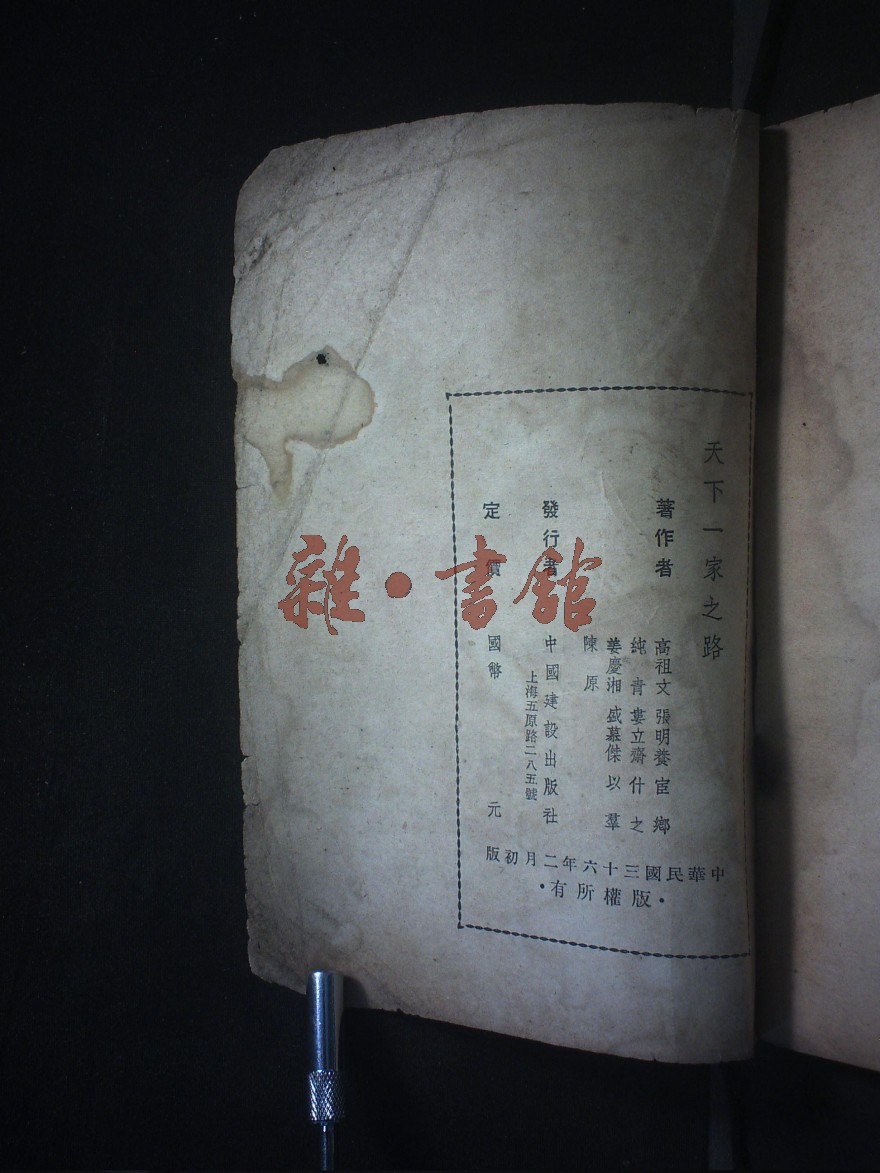 天下一家之路
著作者
高祖文 張明養 宦鄉
純青 婁立齋 什之
姜慶湘 盛慕傑 以羣
陳原
發行者 中國建設出版社
上海五原路二八五號
定價 國幣 元
中華民國三十六年二月初版
•版權所有•
雜•書館